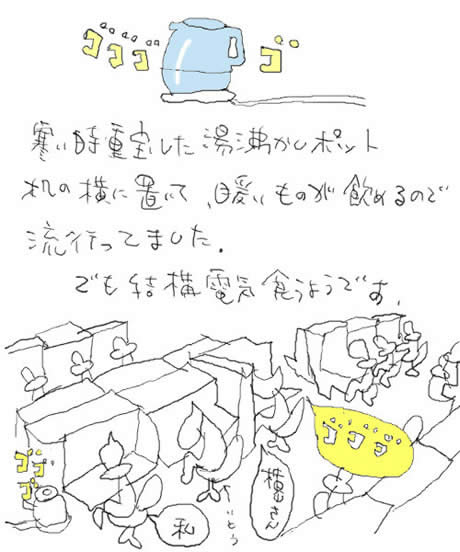 ゴゴゴ
ゴ゙
寒い時重宝した湯沸かしポット
机の横に置いて、暖いものが飲めるので
流行ってました。
でも結構電気食うようです。
ゴゴゴ
ゴゴゴ
さいとう
私